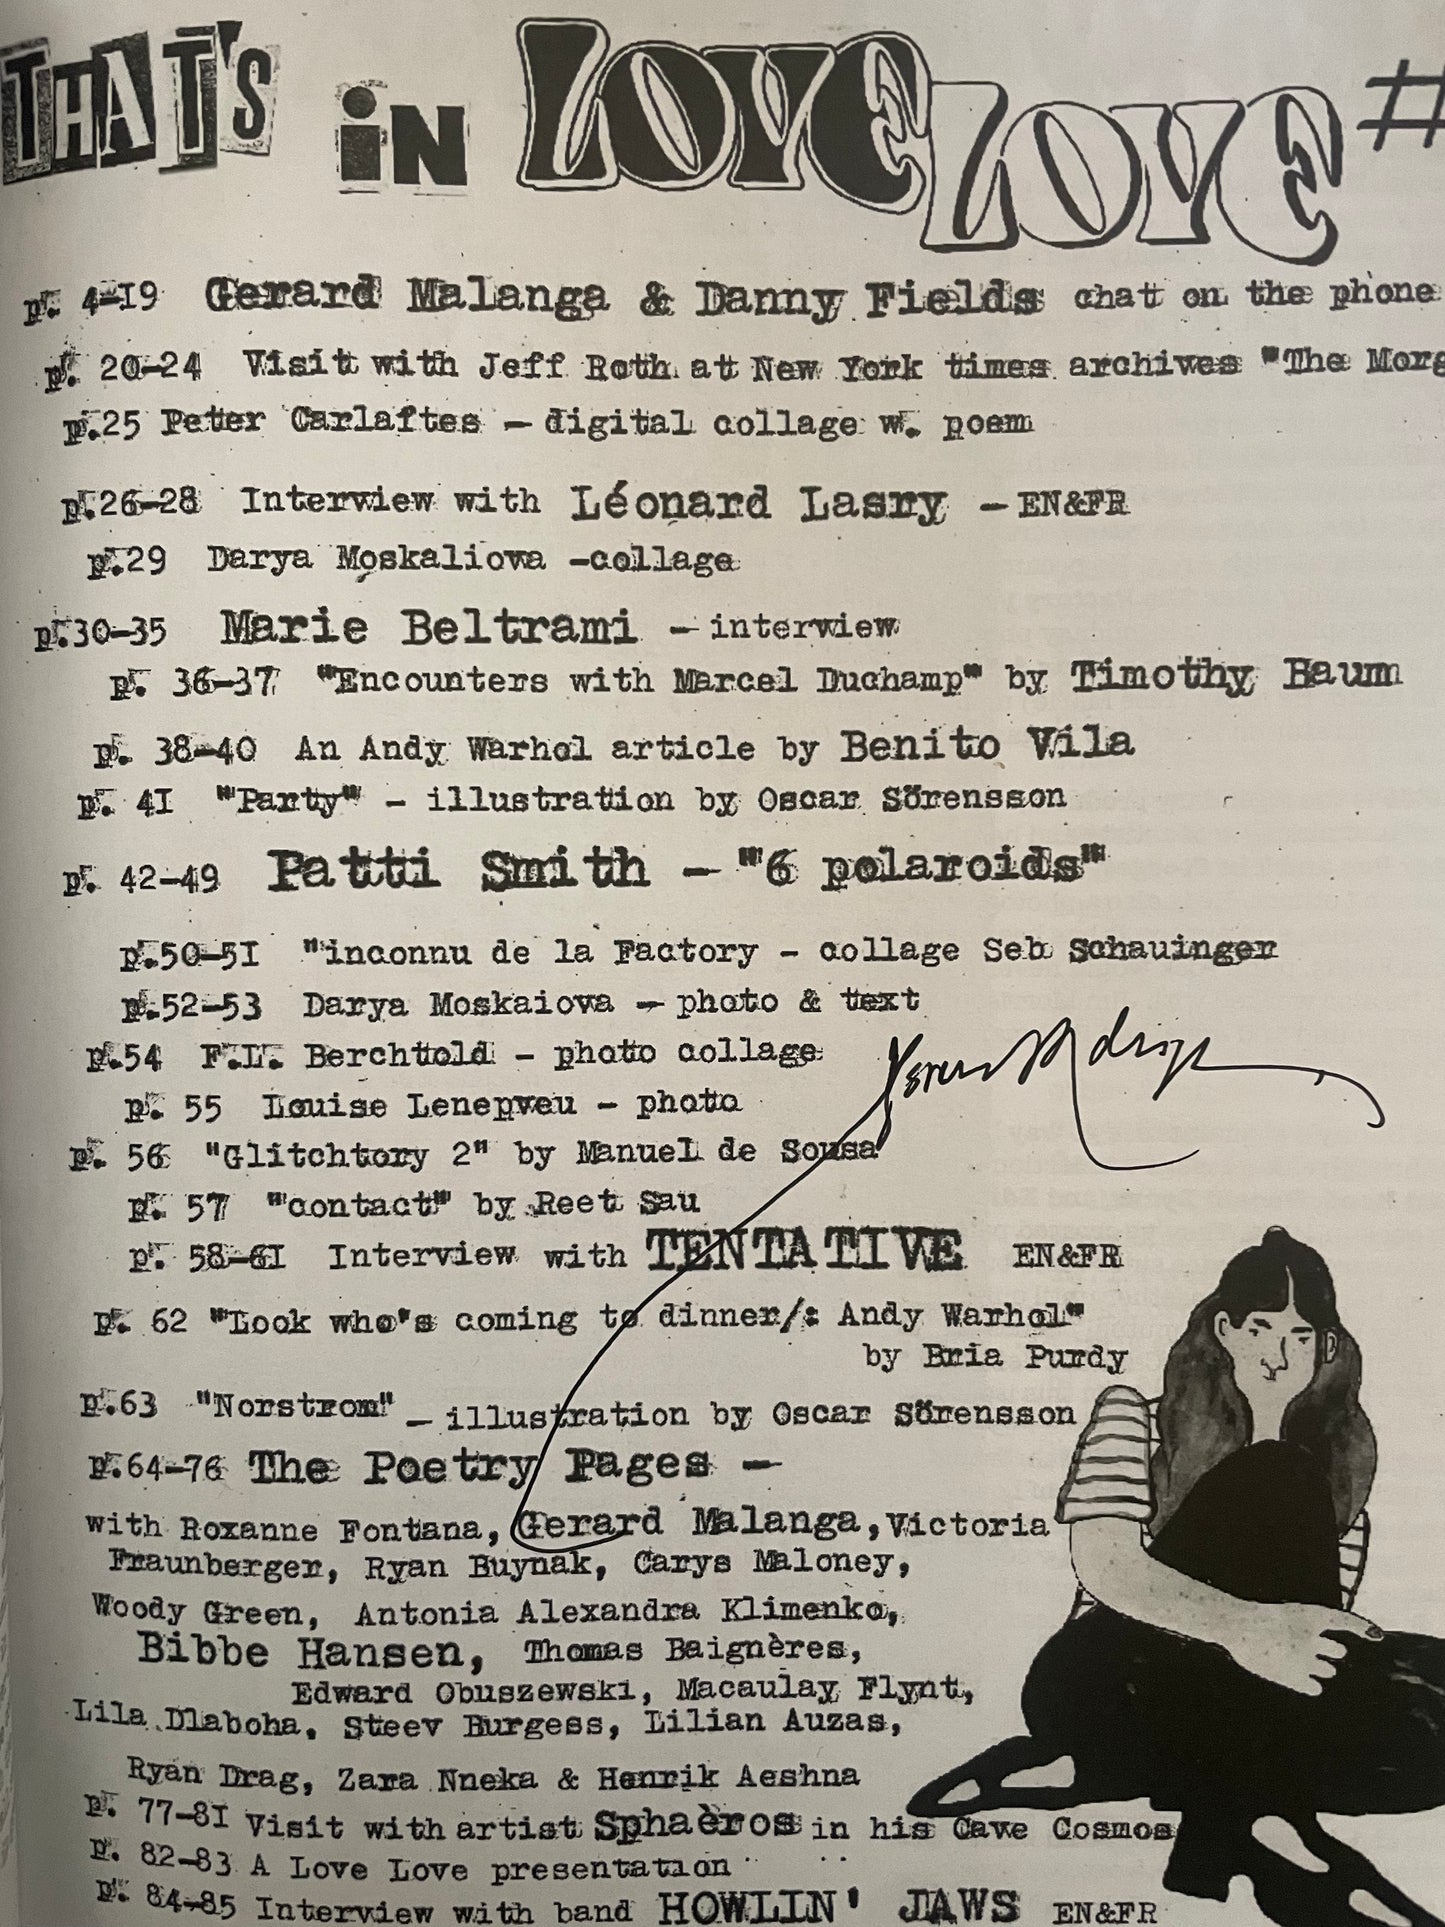 THAT'S iN LOVE LOVE #
p. 4-19 Gerard Malanga & Danny Fields chat on the phone
p. 20-24 Visit with Jeff Roth at New York times archives "The Morg
p.25 Peter Carlaftes - digital collage w. poem
p.26-28 Interview with Léonard Lasry - EN&FR
p.29 Darya Moskaliova -collage
p.30-35 Marie Beltrami - interview
p. 36-37 "Encounters with Marcel Duchamp" by Timothy Baum
p. 38-40 An Andy Warhol article by Benito Vila
p. 41 "Party" - illustration by Oscar Sörensson
p. 42-49 Patti Smith - "6 polaroids"
p.50-51 "inconnu de la Factory - collage Seb Schauinger
p.52-53 Darya Moskaiova - photo & text
p.54 F.L. Berchtold - photo collage
p. 55 Louise Lenepveu - photo
p. 56 "Glitchtory 2" by Manuel de Sousa
p. 57 "contact" by Reet Sau
p. 58-61 Interview with TENTATIVE EN&FR
p. 62 "Look who's coming to dinner/: Andy Warhol"
by Bria Purdy
p.63 "Norstrom" - illustration by Oscar Sörensson
p.64-76 The Poetry Pages -
with Roxanne Fontana, Gerard Malanga, Victoria
Fraunberger, Ryan Buynak, Carys Maloney,
Woody Green, Antonia Alexandra Klimenko,
Bibbe Hansen, Thomas Baignères,
Edward Obuszewski, Macaulay Flynt,
Lila Dlaboha, Steev Burgess, Lilian Auzas,
Ryan Drag, Zara Nneka & Henrik Aeshna
p. 77-81 Visit with artist Sphaèros in his Cave Cosmos
p. 82-83 A Love Love presentation
p. 84-85 Interview with band HOWLIN' JAWS EN&FR